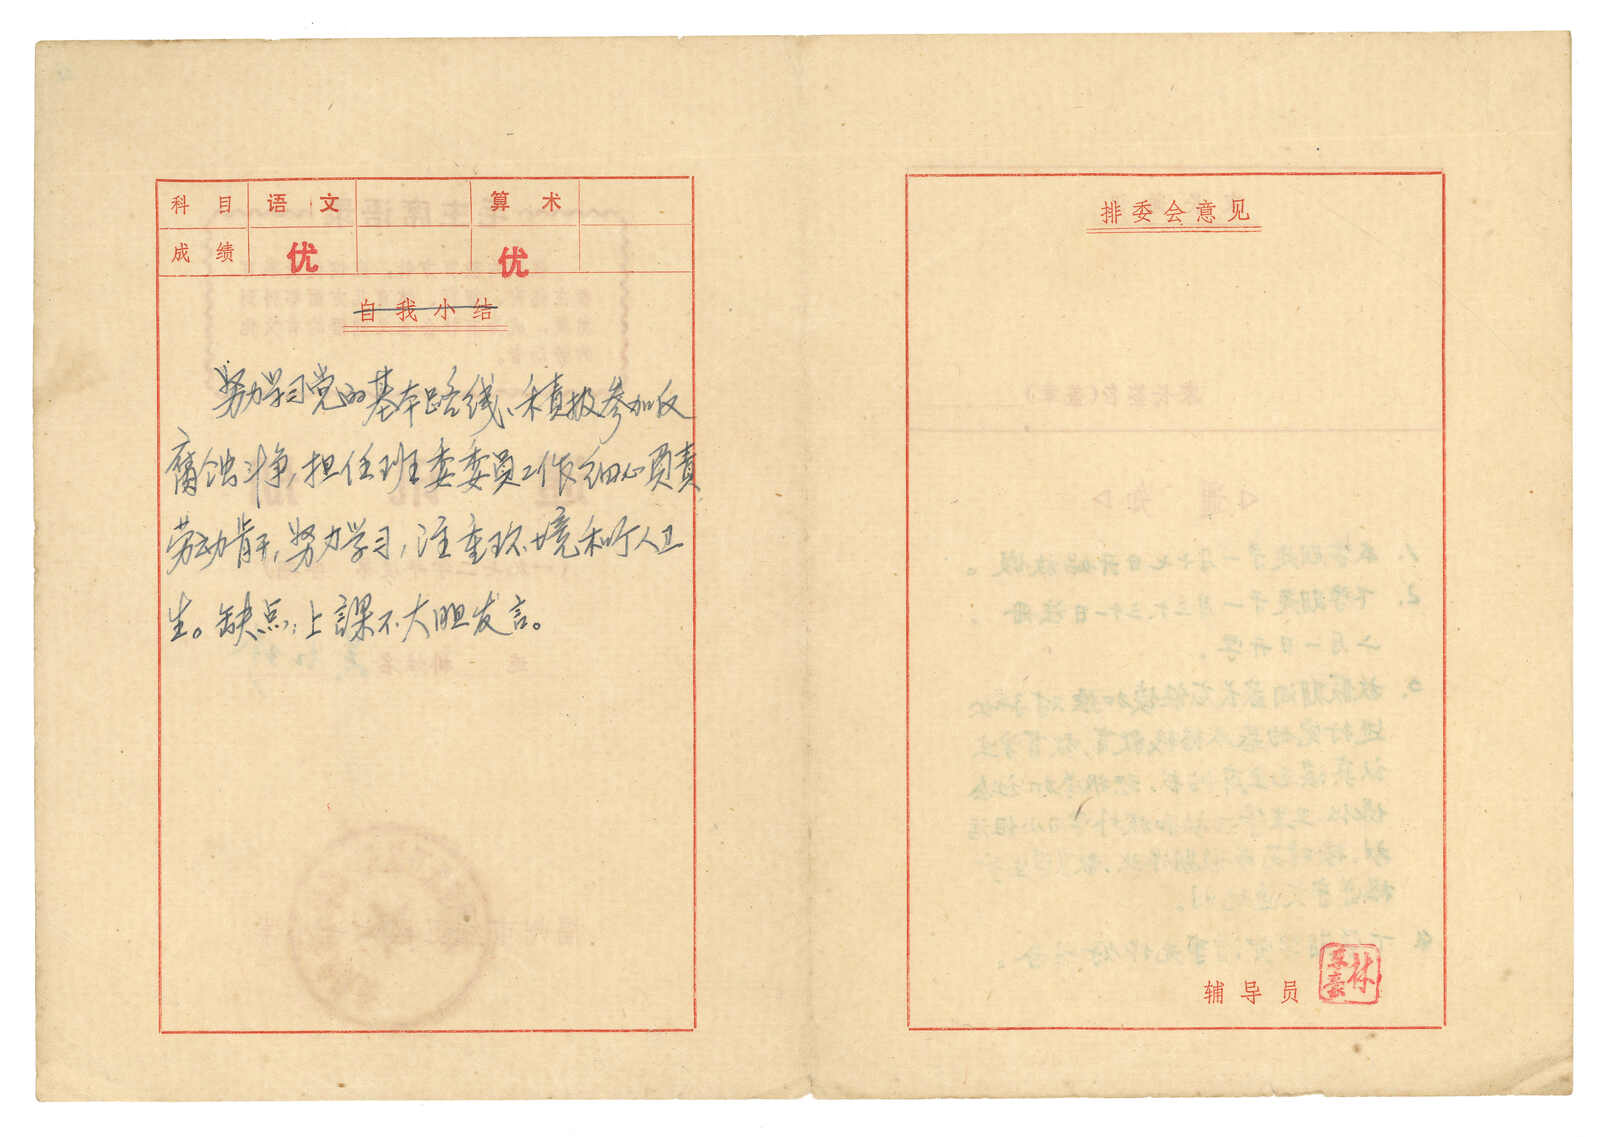 科目 语文 算术
成绩 优 优
自我小结
努力学习党的基本路线、积极参加反
腐蚀斗争,担任班委委员工作细心负责
劳动肯干,努力学习,注重环境和个人卫
生。缺点:上課不大胆发言。
排委会意见
辅导员
林